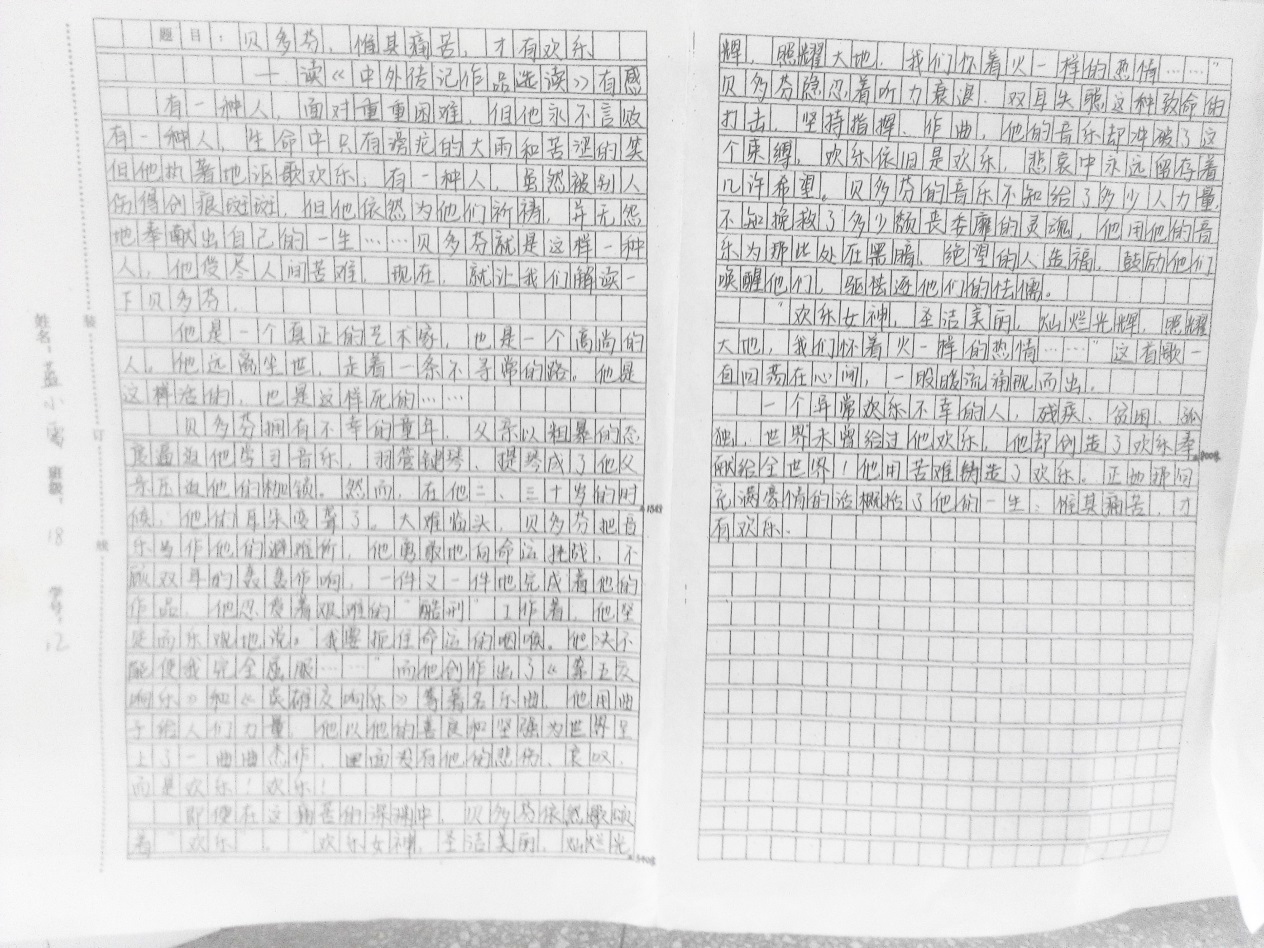 题目：贝多芬，惟其痛苦，才有欢乐
——读《中外传记作品选读》有感
有一种人，面对重重困难，但他永不言败
有一种人，生命中只有滂沱的大雨和苦涩的笑
但他执著地讴歌欢乐，有一种人，虽然被别人
伤得创痕斑斑，但他依然为他们祈祷，并无怨
地奉献出自己的一生……贝多芬就是这样一种
人，他受尽人间苦难，现在，就让我们解读一
下贝多芬，
他是一个真正的艺术家，也是一个高尚的
人。他远离尘世，走着一条不寻常的路。他是
这样活的，也是这样死的……
贝多芬拥有不幸的童年，父亲以粗暴的态
度逼迫他学习音乐，羽管键琴、提琴成了他父
亲压迫他的枷锁。然而，在他二、三十岁的时
候，他的耳朵变聋了。大难临头，贝多芬把音
乐当作他的避难所，他勇敢地向命运挑战，不
顾双耳的轰轰作响，一件又一件地完成着他的
作品，他忍受着艰难的“酷刑”工作着，他坚
定而乐观地说。“我要扼住命运的咽喉。他决不
能使我完全屈服……”而他创作出了《第五交
响乐》和《英雄交响乐》等著名乐曲，他用曲
子给人们力量，他以他的善良和坚强为世界呈
上了一曲曲杰作，里面没有他的悲伤、哀叹，
而是欢乐！欢乐！
即便在这痛苦的深渊中，贝多芬依然歌颂
着“欢乐”。“欢乐女神，圣洁美丽，灿烂光
辉，照耀大地，我们怀着火一样的热情……”
贝多芬隐忍着听力衰退，双耳失聪这种致命的
打击，坚持指挥、作曲，他的音乐却冲破了这
个束缚，欢乐依旧是欢乐，悲哀中永远留存着
几许希望。贝多芬的音乐不知给了多少人力量，
不知挽救了多少颓丧委靡的灵魂，他用他的音
乐为那些处在黑暗、绝望的人造福，鼓励他们
唤醒他们，驱怯逐他们的怯懦。
“欢乐女神，圣洁美丽，灿烂光辉，照耀
大地，我们怀着火一样的热情……”这首歌一
直回荡在心间，一股暖流涌现而出。
一个异常欢乐不幸的人，残疾、贫困、孤
独，世界未曾给过他欢乐，他却创造了欢乐奉
献给全世界！他用苦难铸造了欢乐。正如那句
充满豪情的话概括了他的一生：惟其痛苦，才
有欢乐。
装
订
线
姓名：蓝小 班级：18 学号：12